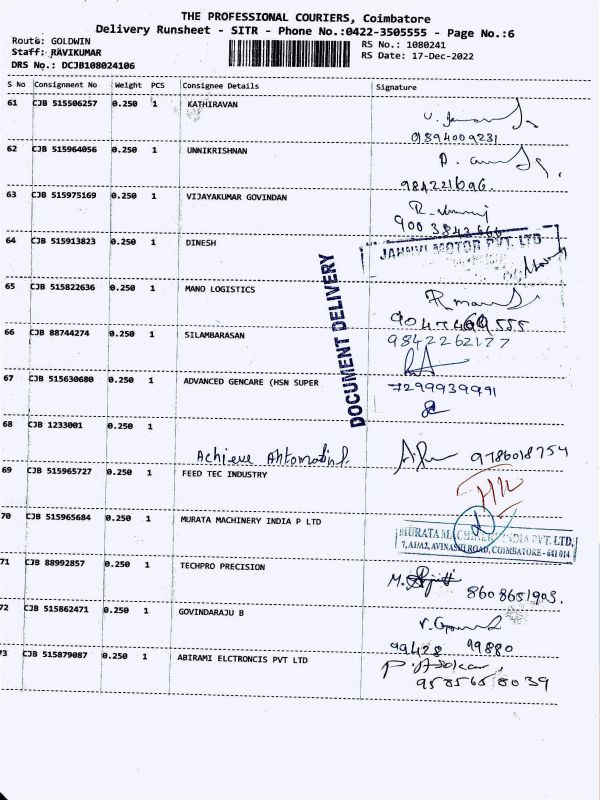 THE PROFESSIONAL COURIERS, Coimbatore
Delivery Runsheet - SITR - Phone No.:0422-3505555 - Page No.:6
Route: GOLDWIN
Staff: RAVIKUMAR
DRS No.: DCJB108024106
RS No.: 1080241
RS Date: 17-Dec-2022
S No Consignment No Weight PCS Consignee Details Signature
61 CJB 515506257 0.250 1 KATHIRAVAN
01894009231
62 CJB 515964056 0.250 1 UNNIKRISHNAN
63 CJB 515975169 0.250 1 VIJAYAKUMAR GOVINDAN
64 CJB 515913823 0.250 1 DINESH
JAHNVI MOTOR PVT. LTD
DOCUMENT DELIVERY
65 CJB 515822636 0.250 1 MANO LOGISTICS
66 CJB 88744274 0.250 1 SILAMBARASAN
9842262177
67 CJB 515630680 0.250 1 ADVANCED GENCARE (HSN SUPER
7299939991
68 CJB 1233001 0.250 1
Achieve 9786018754
69 CJB 515965727 0.250 1 FEED TEC INDUSTRY
70 CJB 515965684 0.250 1 MURATA MACHINERY INDIA P LTD
MURATA MACHINERY INDIA PVT. LTD.
AVINASHI ROAD, COIMBATORE - 641 014
71 CJB 88992857 0.250 1 TECHPRO PRECISION
8608651903.
72 CJB 515862471 0.250 1 GOVINDARAJU B
99428 99880
73 CJB 515879087 0.250 1 ABIRAMI ELCTRONCIS PVT LTD
9585658039